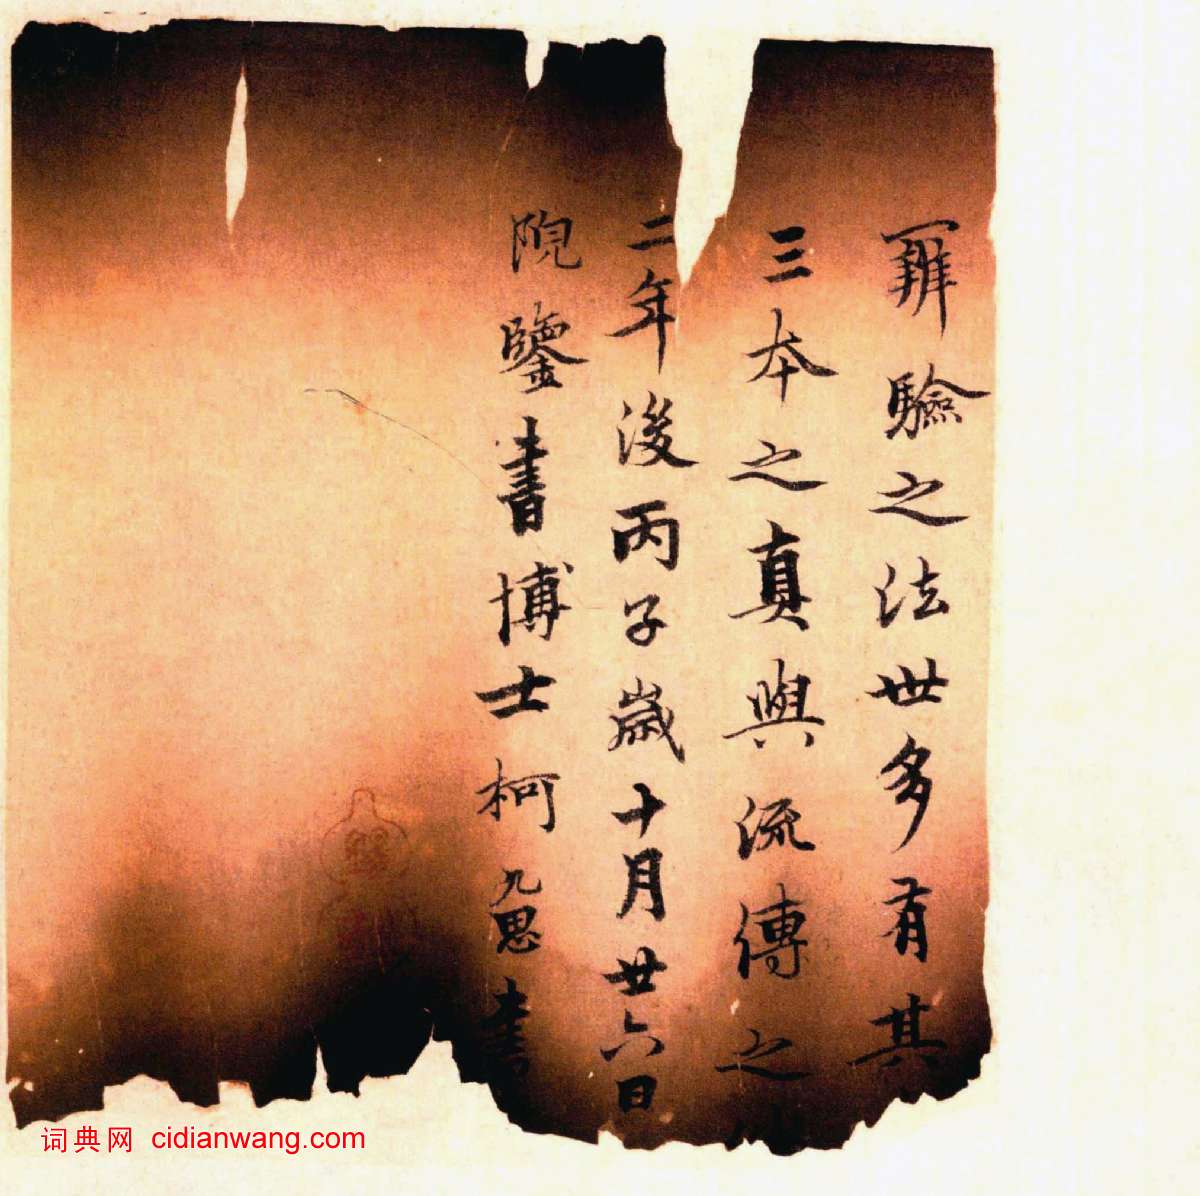 辨驗之法世多有其
三本之真與流傳之
二年後丙子歲十月廿六日
鑒書博士柯九思書
词典网 cidianwang.com